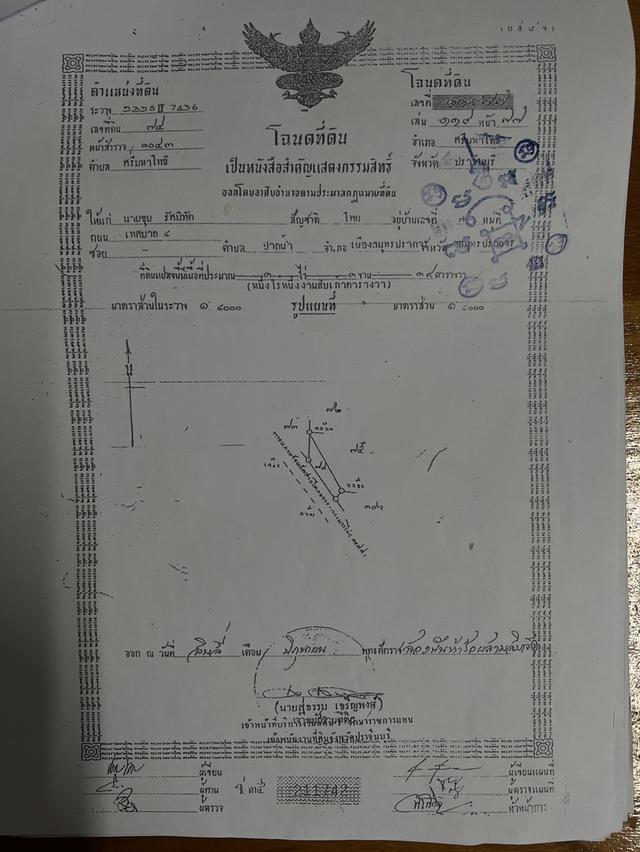 (น.ส.๔ จ.)
ตำแหน่งที่ดิน
ระวาง 5336 II 7436
เลขที่ดิน ๗๔
หน้าสำรวจ ๑๐๔๓
ตำบล ศรีมหาโพธิ
โฉนดที่ดิน
เลขที่
เล่ม ๑๑๙ หน้า ๗๗
อำเภอ ศรีมหาโพธิ
จังหวัด ปราจีนบุรี
โฉนดที่ดิน
เป็นหนังสือสำคัญแสดงกรรมสิทธิ์
ออกโดยอาศัยอำนาจตามประมวลกฎหมายที่ดิน
ให้แก่ นายชุบ รัศมิทัต สัญชาติ ไทย อยู่บ้านเลขที่ ๗ หมู่ที่
ถนน เทศบาล ๔
ซอย – ตำบล ปากน้ำ อำเภอ เมืองสมุทรปราการ จังหวัด สมุทรปราการ
ที่ดินแปลงนี้มีเนื้อที่ประมาณ ๑ ไร่ ๑ งาน ๑๙ ตารางวา
(หนึ่งไร่หนึ่งงานสิบเก้าตารางวา)
มาตราส่วนในระวาง ๑: ๔๐๐๐ รูปแผนที่ มาตราส่วน ๑: ๔๐๐๐
น
๗๒
๗๓
๗๕
๗๔
๑๐๖
ออก ณ วันที่ สิบสี่ เดือน มิถุนายน พุทธศักราช สองพันห้าร้อยสามสิบเจ็ด
(นายสุธรรม เจริญพงศ์)
เจ้าพนักงานที่ดินจังหวัดปราจีนบุรี
ผู้เขียน
ผู้ทาน
ผู้ตรวจ
211742
ผู้เขียนแผนที่
ผู้ตรวจแผนที่
หัวหน้าการ